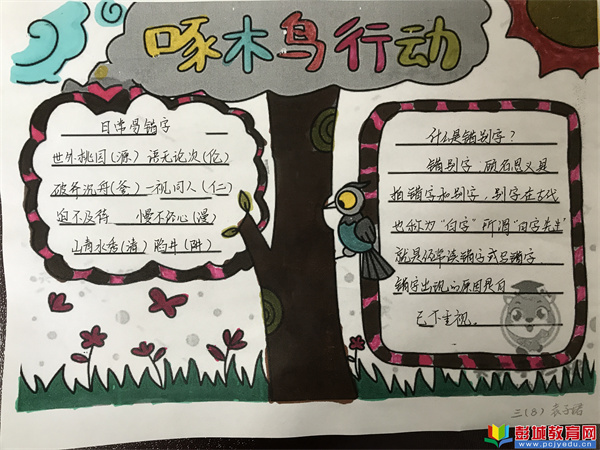 啄木鸟行动
日常易错字
世外桃园(源) 语无论次(伦)
破斧沉舟(釜) 一视同人(仁)
迫不及待 慢不经心(漫)
山青水秀(清) 陷井(阱)
什么是错别字?
错别字,顾名思义是
指错字和别字,别字在古代
也称为“白字”所谓“白字先生”
就是经常读错字或写错字
错字出现的原因是自
己不重视。
三(8) 袁子诺
彭城教育网
www.pcjyedu.cn